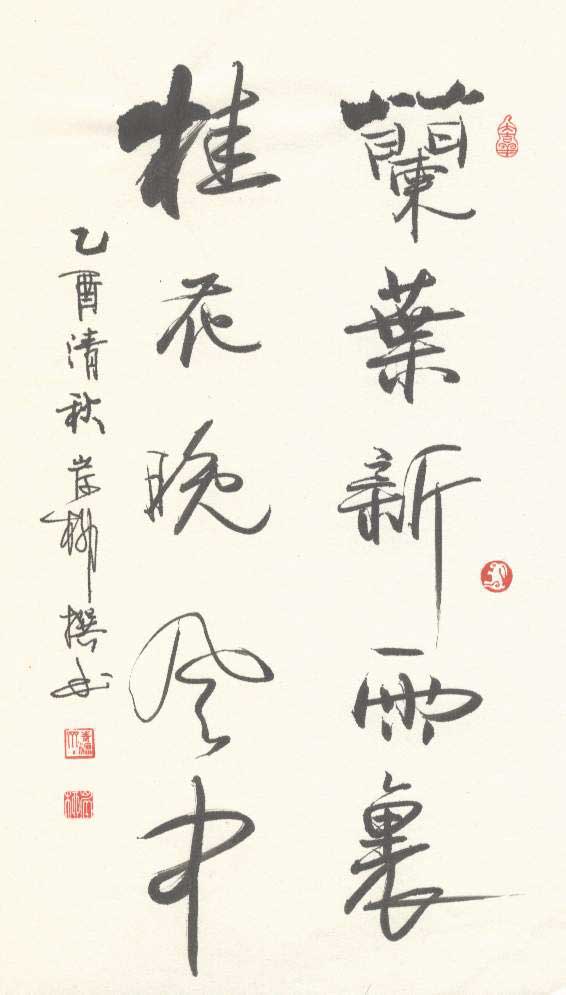 蘭葉新雨裏
桂花晚風中
乙酉清秋岸柳撰書